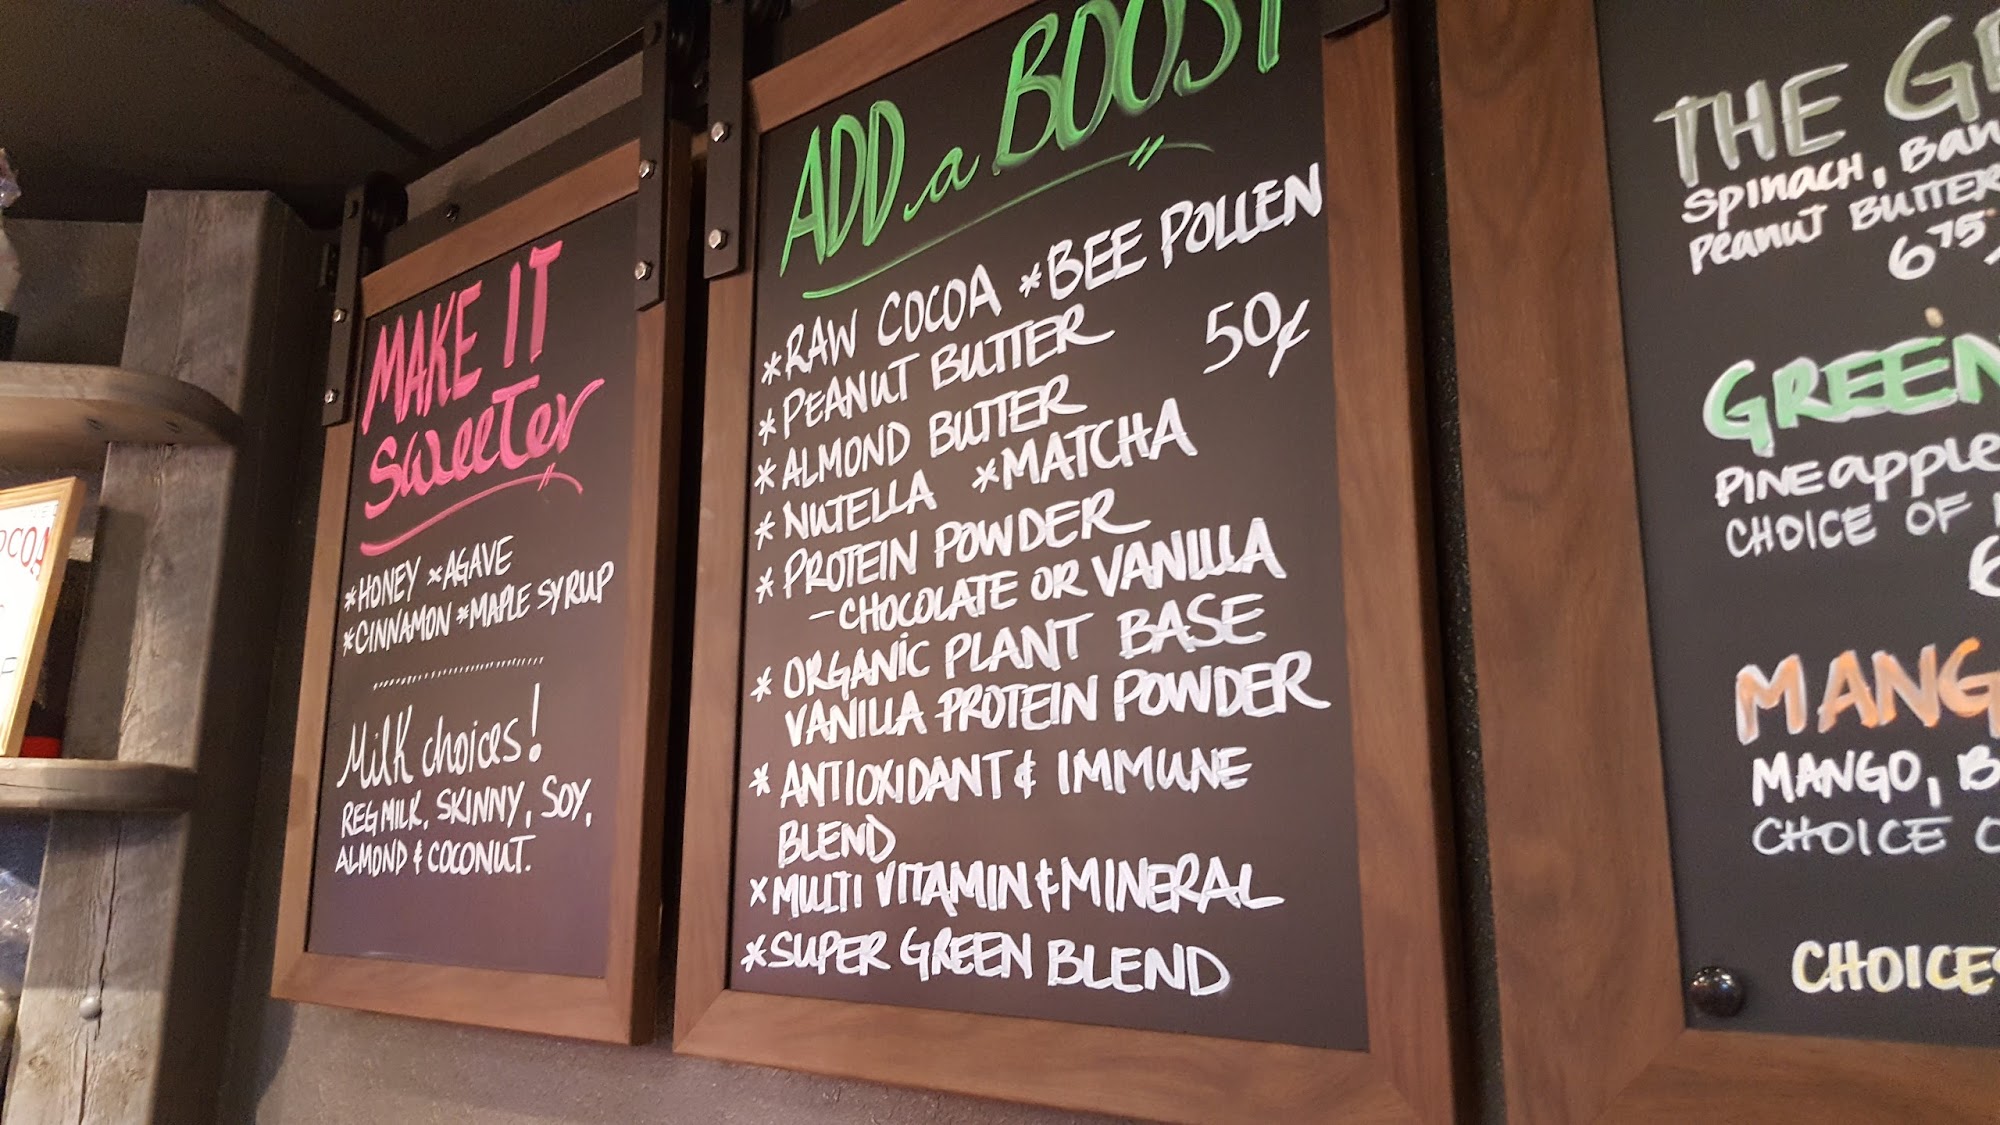 MAKE IT
SWEETER
*HONEY *AGAVE
*CINNAMON *MAPLE SYRUP
Milk choices!
REG MILK, SKINNY, SOY,
ALMOND & COCONUT.
ADD a BOOST
*RAW COCOA *BEE POLLEN
*PEANUT BUTTER 50¢
*ALMOND BUTTER
*NUTELLA *MATCHA
*PROTEIN POWDER
-CHOCOLATE OR VANILLA
*ORGANIC PLANT BASE
VANILLA PROTEIN POWDER
*ANTIOXIDANT & IMMUNE
BLEND
*MULTI VITAMIN & MINERAL
*SUPER GREEN BLEND
THE
SPINACH,
PEANUT BUTTER
6.75
GREEN
PINEapple
CHOICE OF
MANGO, 
CHOICE
CHOICES